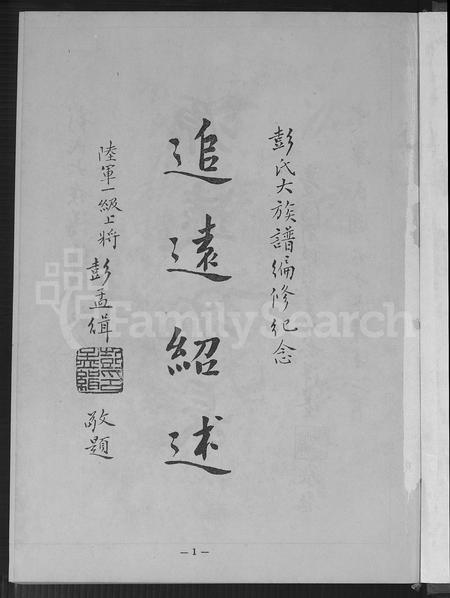 彭氏大族譜編修紀念
追遠紹述
陸軍一級上將 彭孟緝 敬題
彭孟緝印
FamilySearch
— 1 —